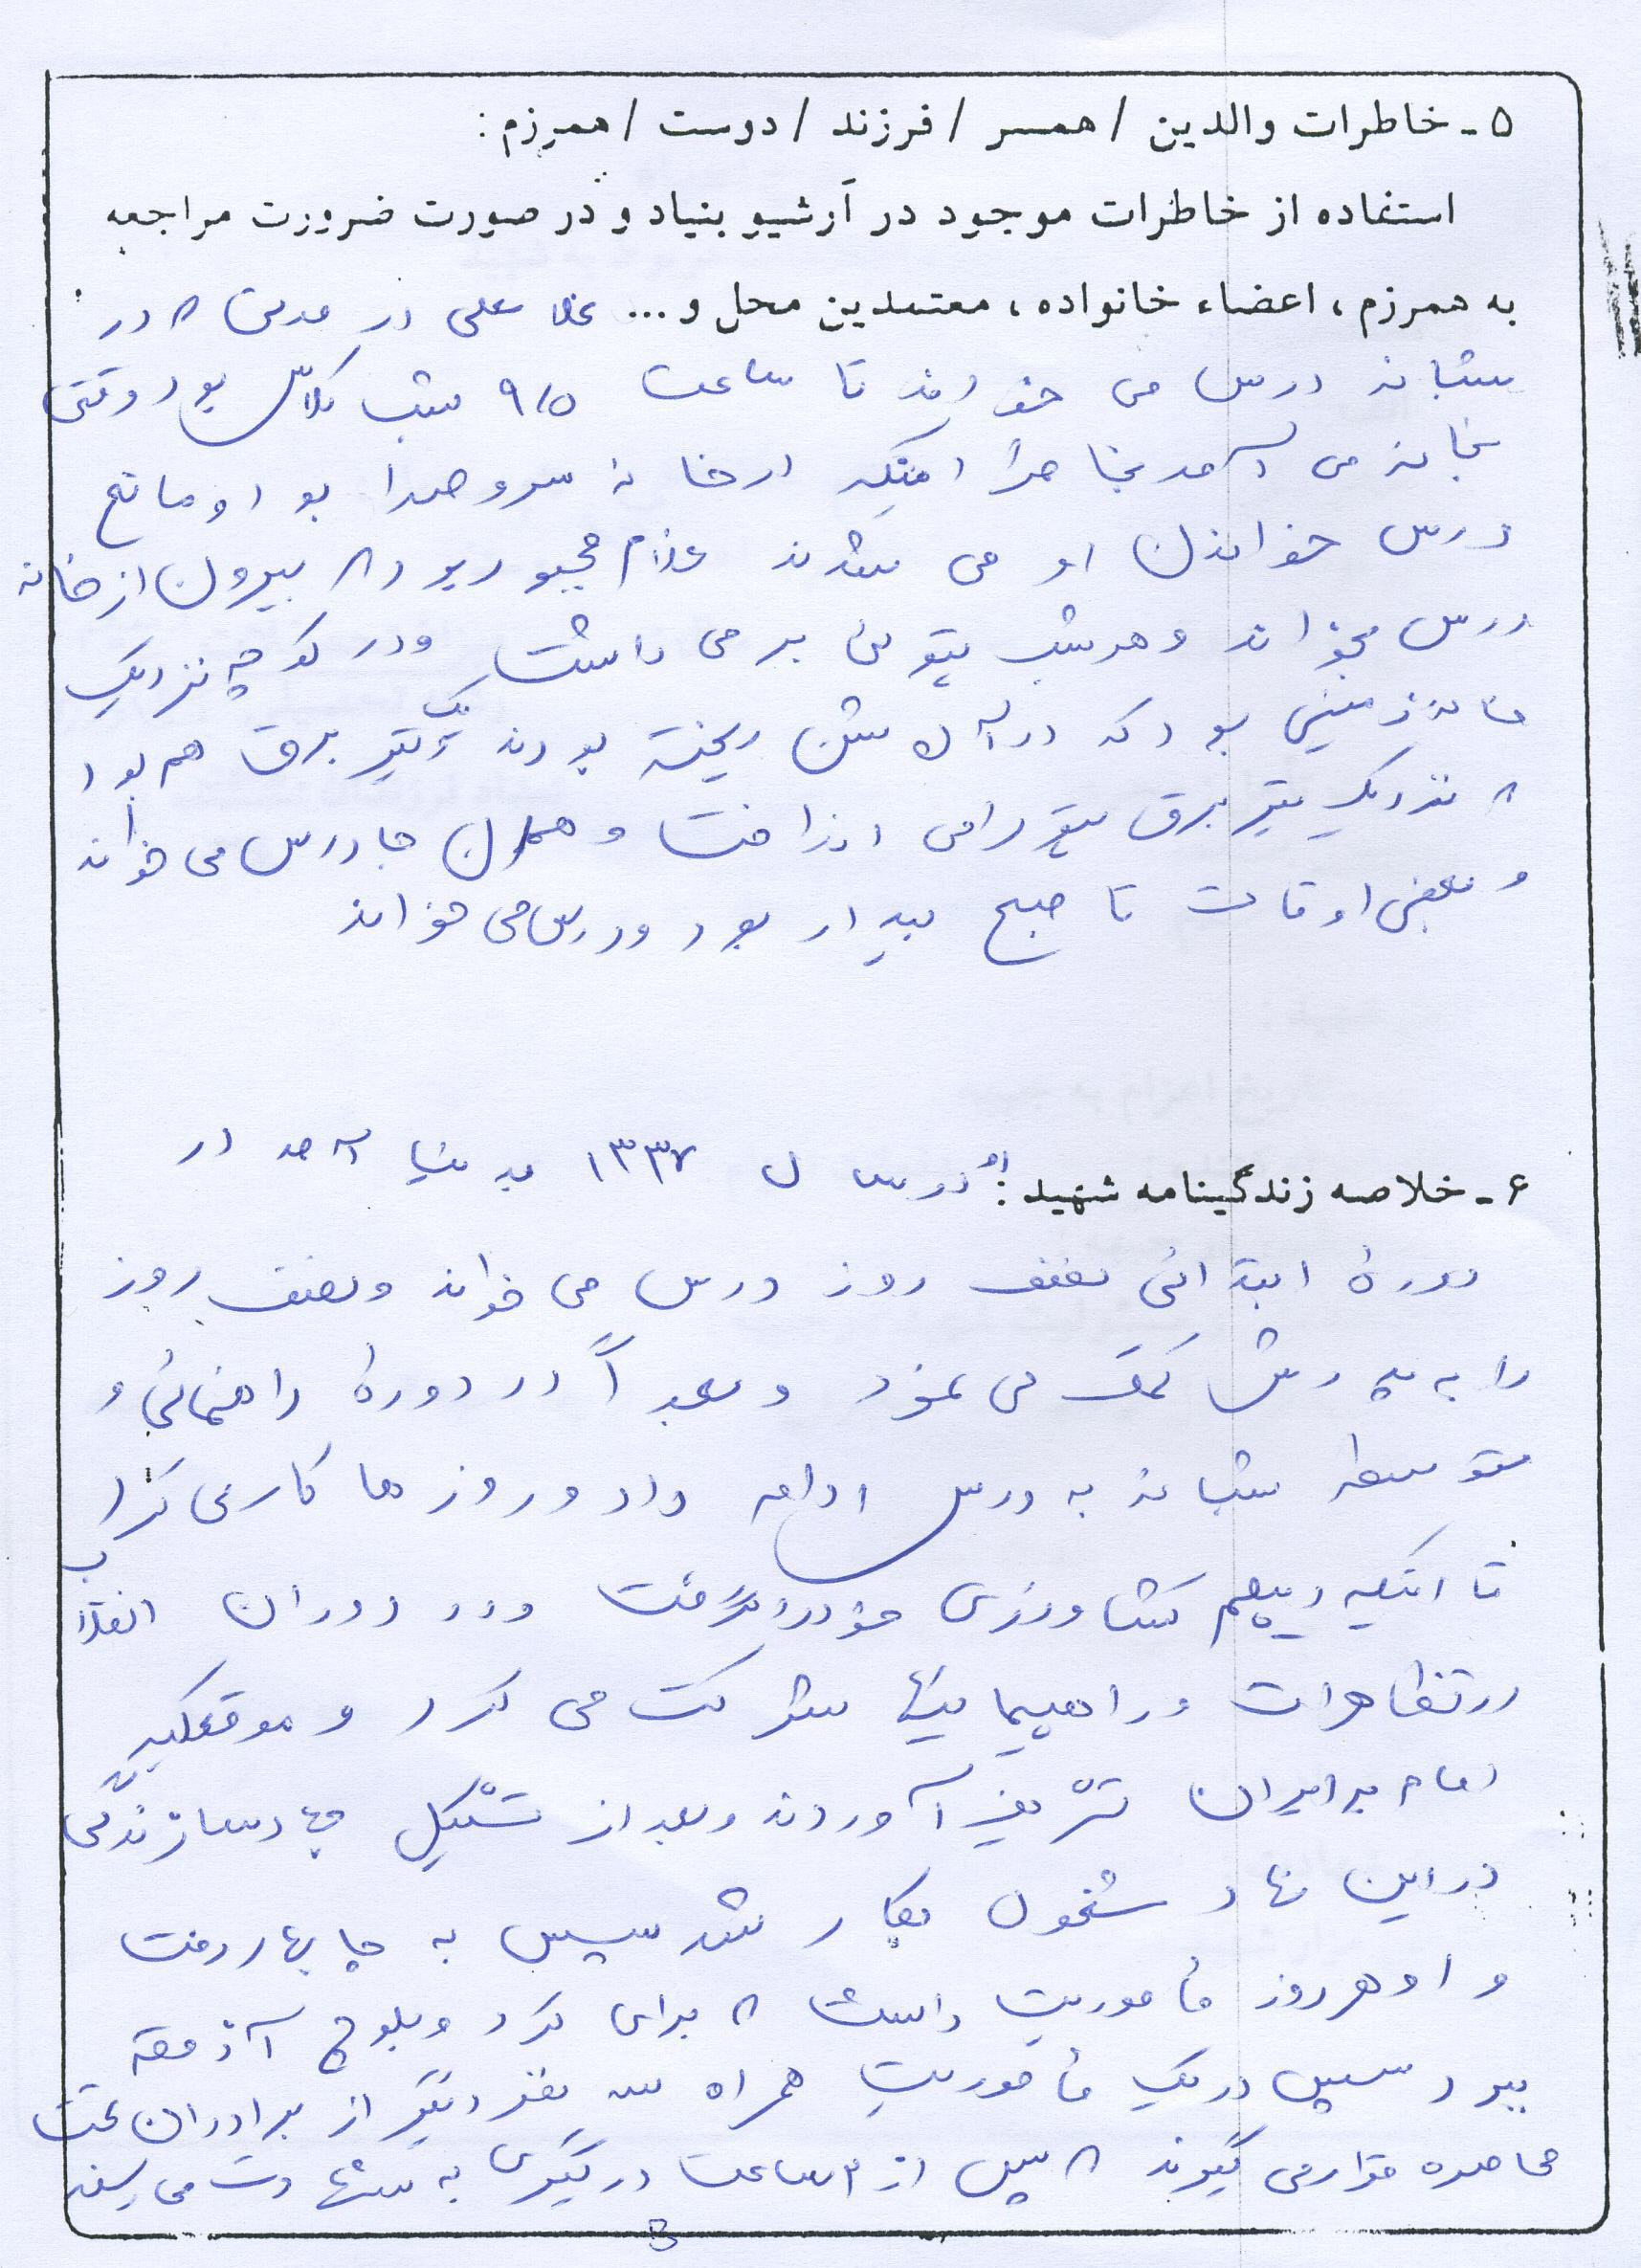 ۵ - خاطرات والدین / همسر / فرزند / دوست / همرزم :
استفاده از خاطرات موجود در آرشیو بنیاد و در صورت ضرورت مراجعه
به همرزم ، اعضاء خانواده ، معتمدین محل و ... غلامعلی در مدرسه
شبانه درس می خواند تا ساعت ۹/۵ شب کلاس بود وقتی
بخانه می آمد بخاطر اینکه در خانه سر و صدا بود و مانع
درس خواندن او می شدند غلام مجبور بود بیرون از خانه
درس بخواند و هر شب پتوئی بر می داشت و در کوچه نزدیک
خانه زمینی بود که در آن شن ریخته بودند یک تیر برق هم بود
نزدیک تیر برق پتو را می انداخت و همان جا درس می خواند
و بعضی اوقات تا صبح بیدار بود و درس می خواند
۶ - خلاصه زندگینامه شهید : او در سال ۱۳۳۷ به دنیا آمد در
دورهٔ ابتدائی نصف روز درس می خواند و نصف روز
را به پدرش کمک می نمود و بعداً در دورهٔ راهنمائی و
متوسطه شبانه به درس ادامه داد و روزها کار می کرد
تا اینکه دیپلم کشاورزی خود را گرفت و در دوران انقلاب
در تظاهرات و راهپیمائیها شرکت می کرد و موقعیکه
امام به ایران تشریف آوردند و بعد از تشکیل جهاد سازندگی
در این نهاد مشغول بکار شد سپس به چابهار رفت
و او هر روز مأموریت داشت برای کرد و بلوچ آذوقه
ببرد سپس در یک مأموریت همراه سه نفر دیگر از برادران تحت
محاصره قرار می گیرند پس از ۳ ساعت درگیری به شهادت می رسند